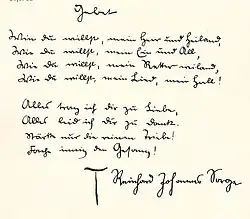 Gebet
Wie du willst, mein Herr und Heiland,
Wie du willst, mein Ein und All,
Wie du willst, mein Retter weiland,
Wie du willst, mein Lied, mein Hall!
Alles trag ich dir zu Liebe,
Alles leid ich dir zu Dank.
Stärke nur die einen Triebe!
innig den Gesang!
Reinhard Johannes Sorge